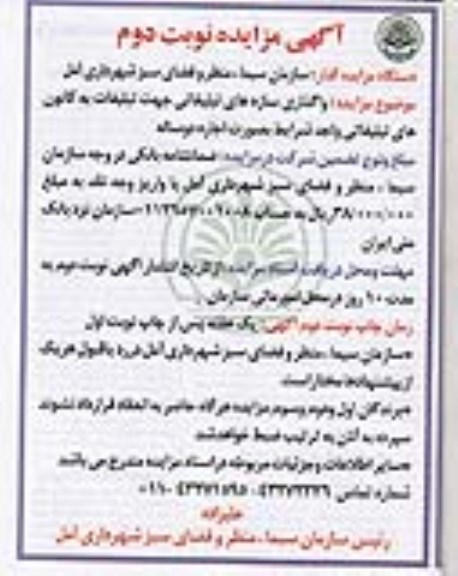 آگهی مزایده نوبت دوم
دستگاه مزایده گذار: سازمان سیما ، منظر و فضای سبز شهرداری آمل
موضوع مزایده: واگذاری سازه های تبلیغاتی جهت تبلیغات به کانون
های تبلیغاتی واجد شرایط بصورت اجاره دوساله
مبلغ ونوع تضمین شرکت در مزایده: ضمانتنامه بانکی در وجه سازمان
سیما ، منظر و فضای سبز شهرداری آمل یا واریز وجه نقد به مبلغ
ریال به حساب سازمان نزد بانک
ملی ایران
مهلت ومحل دریافت اسناد مزایده: از تاریخ انتشار آگهی نوبت دوم به
مدت ۱۰ روز در محل امور مالی سازمان .
زمان چاپ نوبت دوم آگهی: یک هفته پس از چاپ نوبت اول
*سازمان سیما ، منظر و فضای سبز شهرداری آمل در رد یا قبول هر یک
از پیشنهادها مختار است.
*برندگان اول ودوم وسوم مزایده هرگاه حاضر به انعقاد قرارداد نشوند
سپرده به آنان به ترتیب ضبط خواهد شد.
*سایر اطلاعات و جزئیات مربوطه در اسناد مزایده مندرج می باشد
شماره تماس:
علیزاده
رئیس سازمان سیما ، منظر و فضای سبز شهرداری آمل